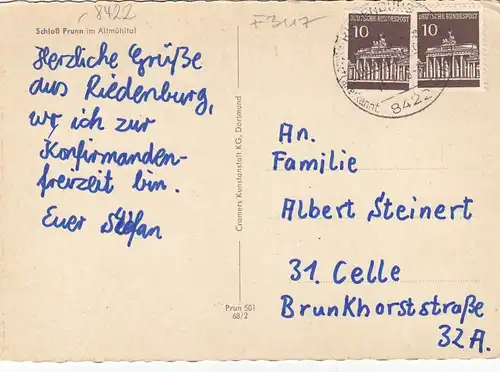 8422
F3117
Schloß Prunn im Altmühltal
Herzliche Grüße
aus Riedenburg,
wo ich zur
Konfirmanden-
freizeit bin.
Euer Stefan
Cramers Kunstanstalt KG, Dortmund
Prun 501
68/2
10
DEUTSCHE BUNDESPOST
10
DEUTSCHE BUNDESPOST
8422
An.
Familie
Albert Steinert
31. Celle
Brunkhorststraße
32A.